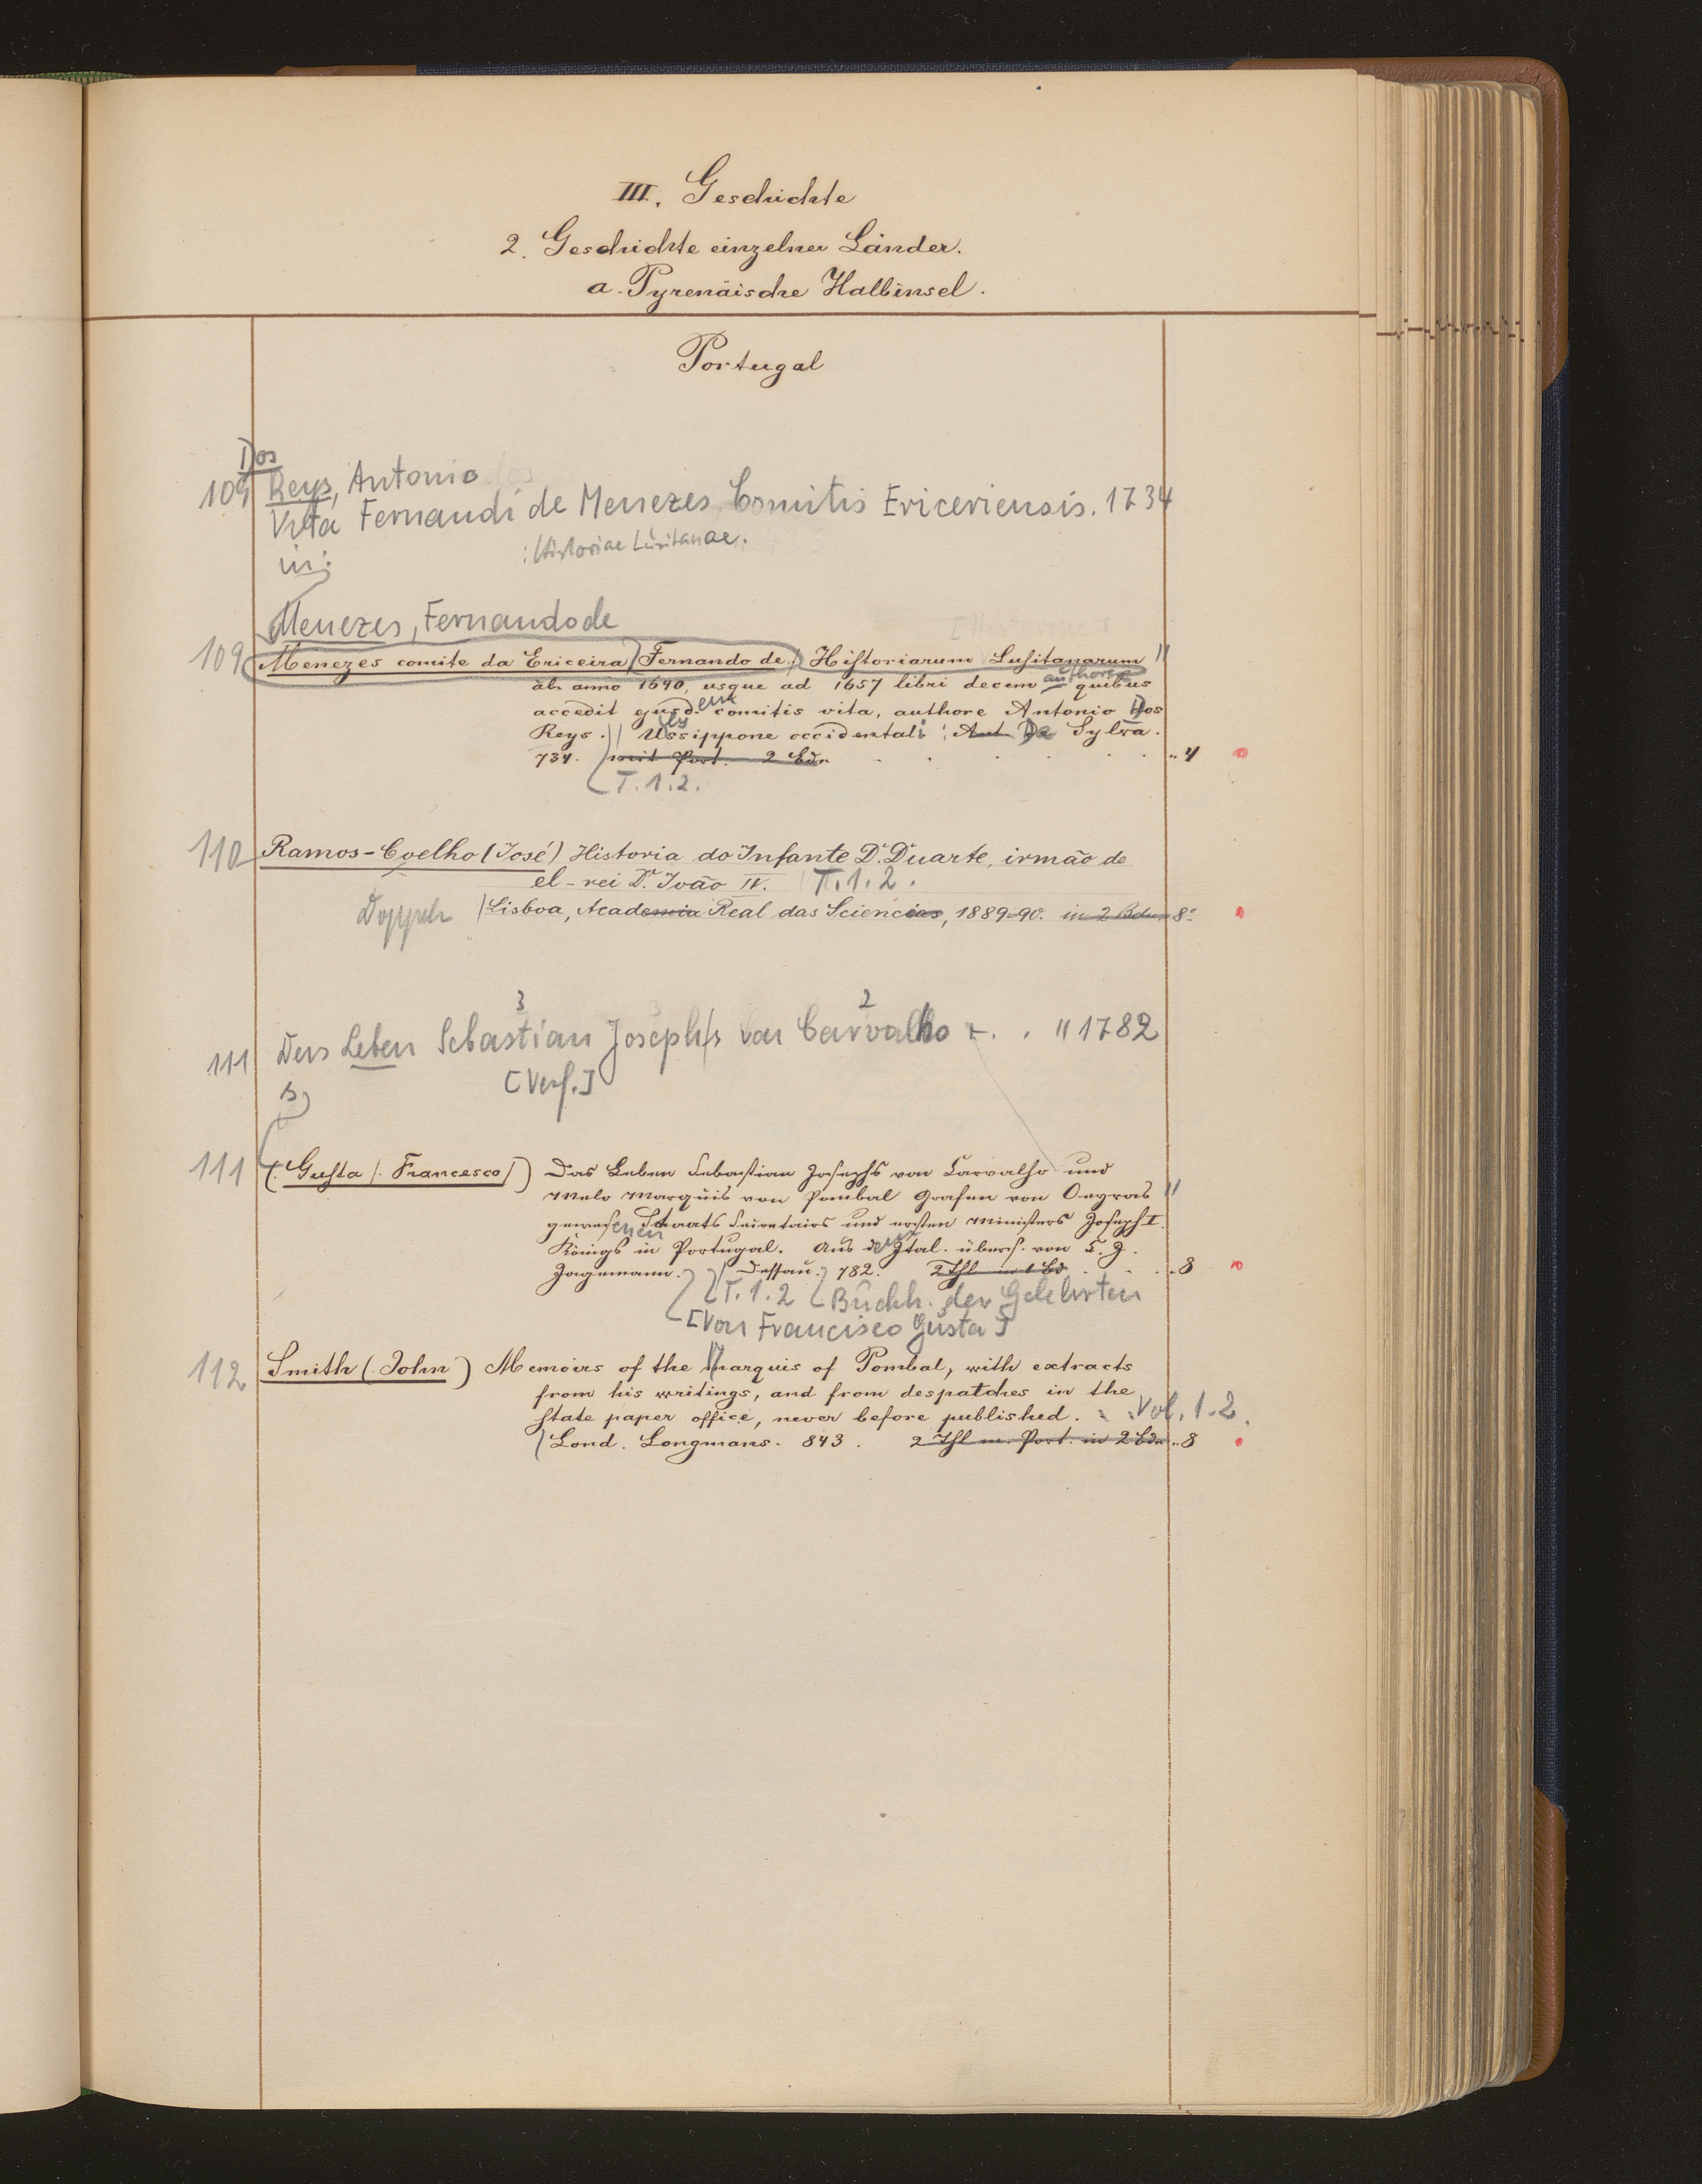 III. Geschichte
2. Geschichte einzelner Länder.
a. Pyrenäische Halbinsel.
Portugal
Dos
109 Reys, Antonio
Vita Fernandi de Menezes Comitis Ericeriensis. 1734
: Historiae Lusitanae.
in:
Menezes, Fernando de
109 Menezes comite da Ericeira (Fernando de) Historiarum Lusitanarum
ab anno 1640, usque ad 1657 libri decem authore quibus
accedit ejusdem comitis vita, authore Antonio Dos
Reys. Ulyssippone occidentali: Ant. Da Sylva.
734. mit Port. 2 Bdn .. 4
T. 1. 2.
110 Ramos-Coelho (José) Historia do Infante D. Duarte, irmão de
el-rei D. João IV. T. 1. 2.
Doppelt Lisboa, Academia Real das Sciencias, 1889-90. in 2 Bdn 8º
3 2
111 Das Leben Sebastian Josephs von Carvalho +. . " 1782
[Verf.]
s)
111 (Gusta (Francesco)) Das Leben Sebastian Josephs von Carvalho und
Melo Marquis von Pombal Grafen von Oeyras "
gewesenen Staats Secretairs und ersten Ministers Joseph I.
Königs in Portugal. Aus dem Ital. übers. von C. J.
Jagemann. Dessau. 782. 2 Thl in 1 Bd .. 8
T. 1. 2 Buchh. der Gelehrten
[Von Francisco Gusta]
112 Smith (John) Memoirs of the Marquis of Pombal, with extracts
from his writings, and from despatches in the
state paper office, never before published. Vol. 1. 2.
Lond. Longmans. 843. 2 Thl m. Port. in 2 Bdn .. 8